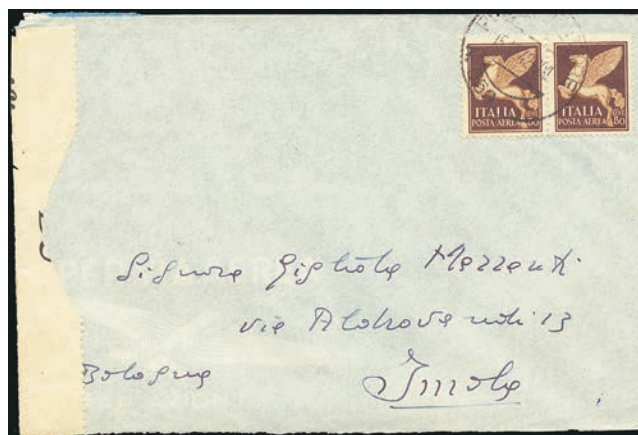 ITALIA ITALIA
POSTA AEREA 50 POSTA AEREA 50
Signora Gigliola Mazzanti
via Aldrovandi 13
Bologna Imola